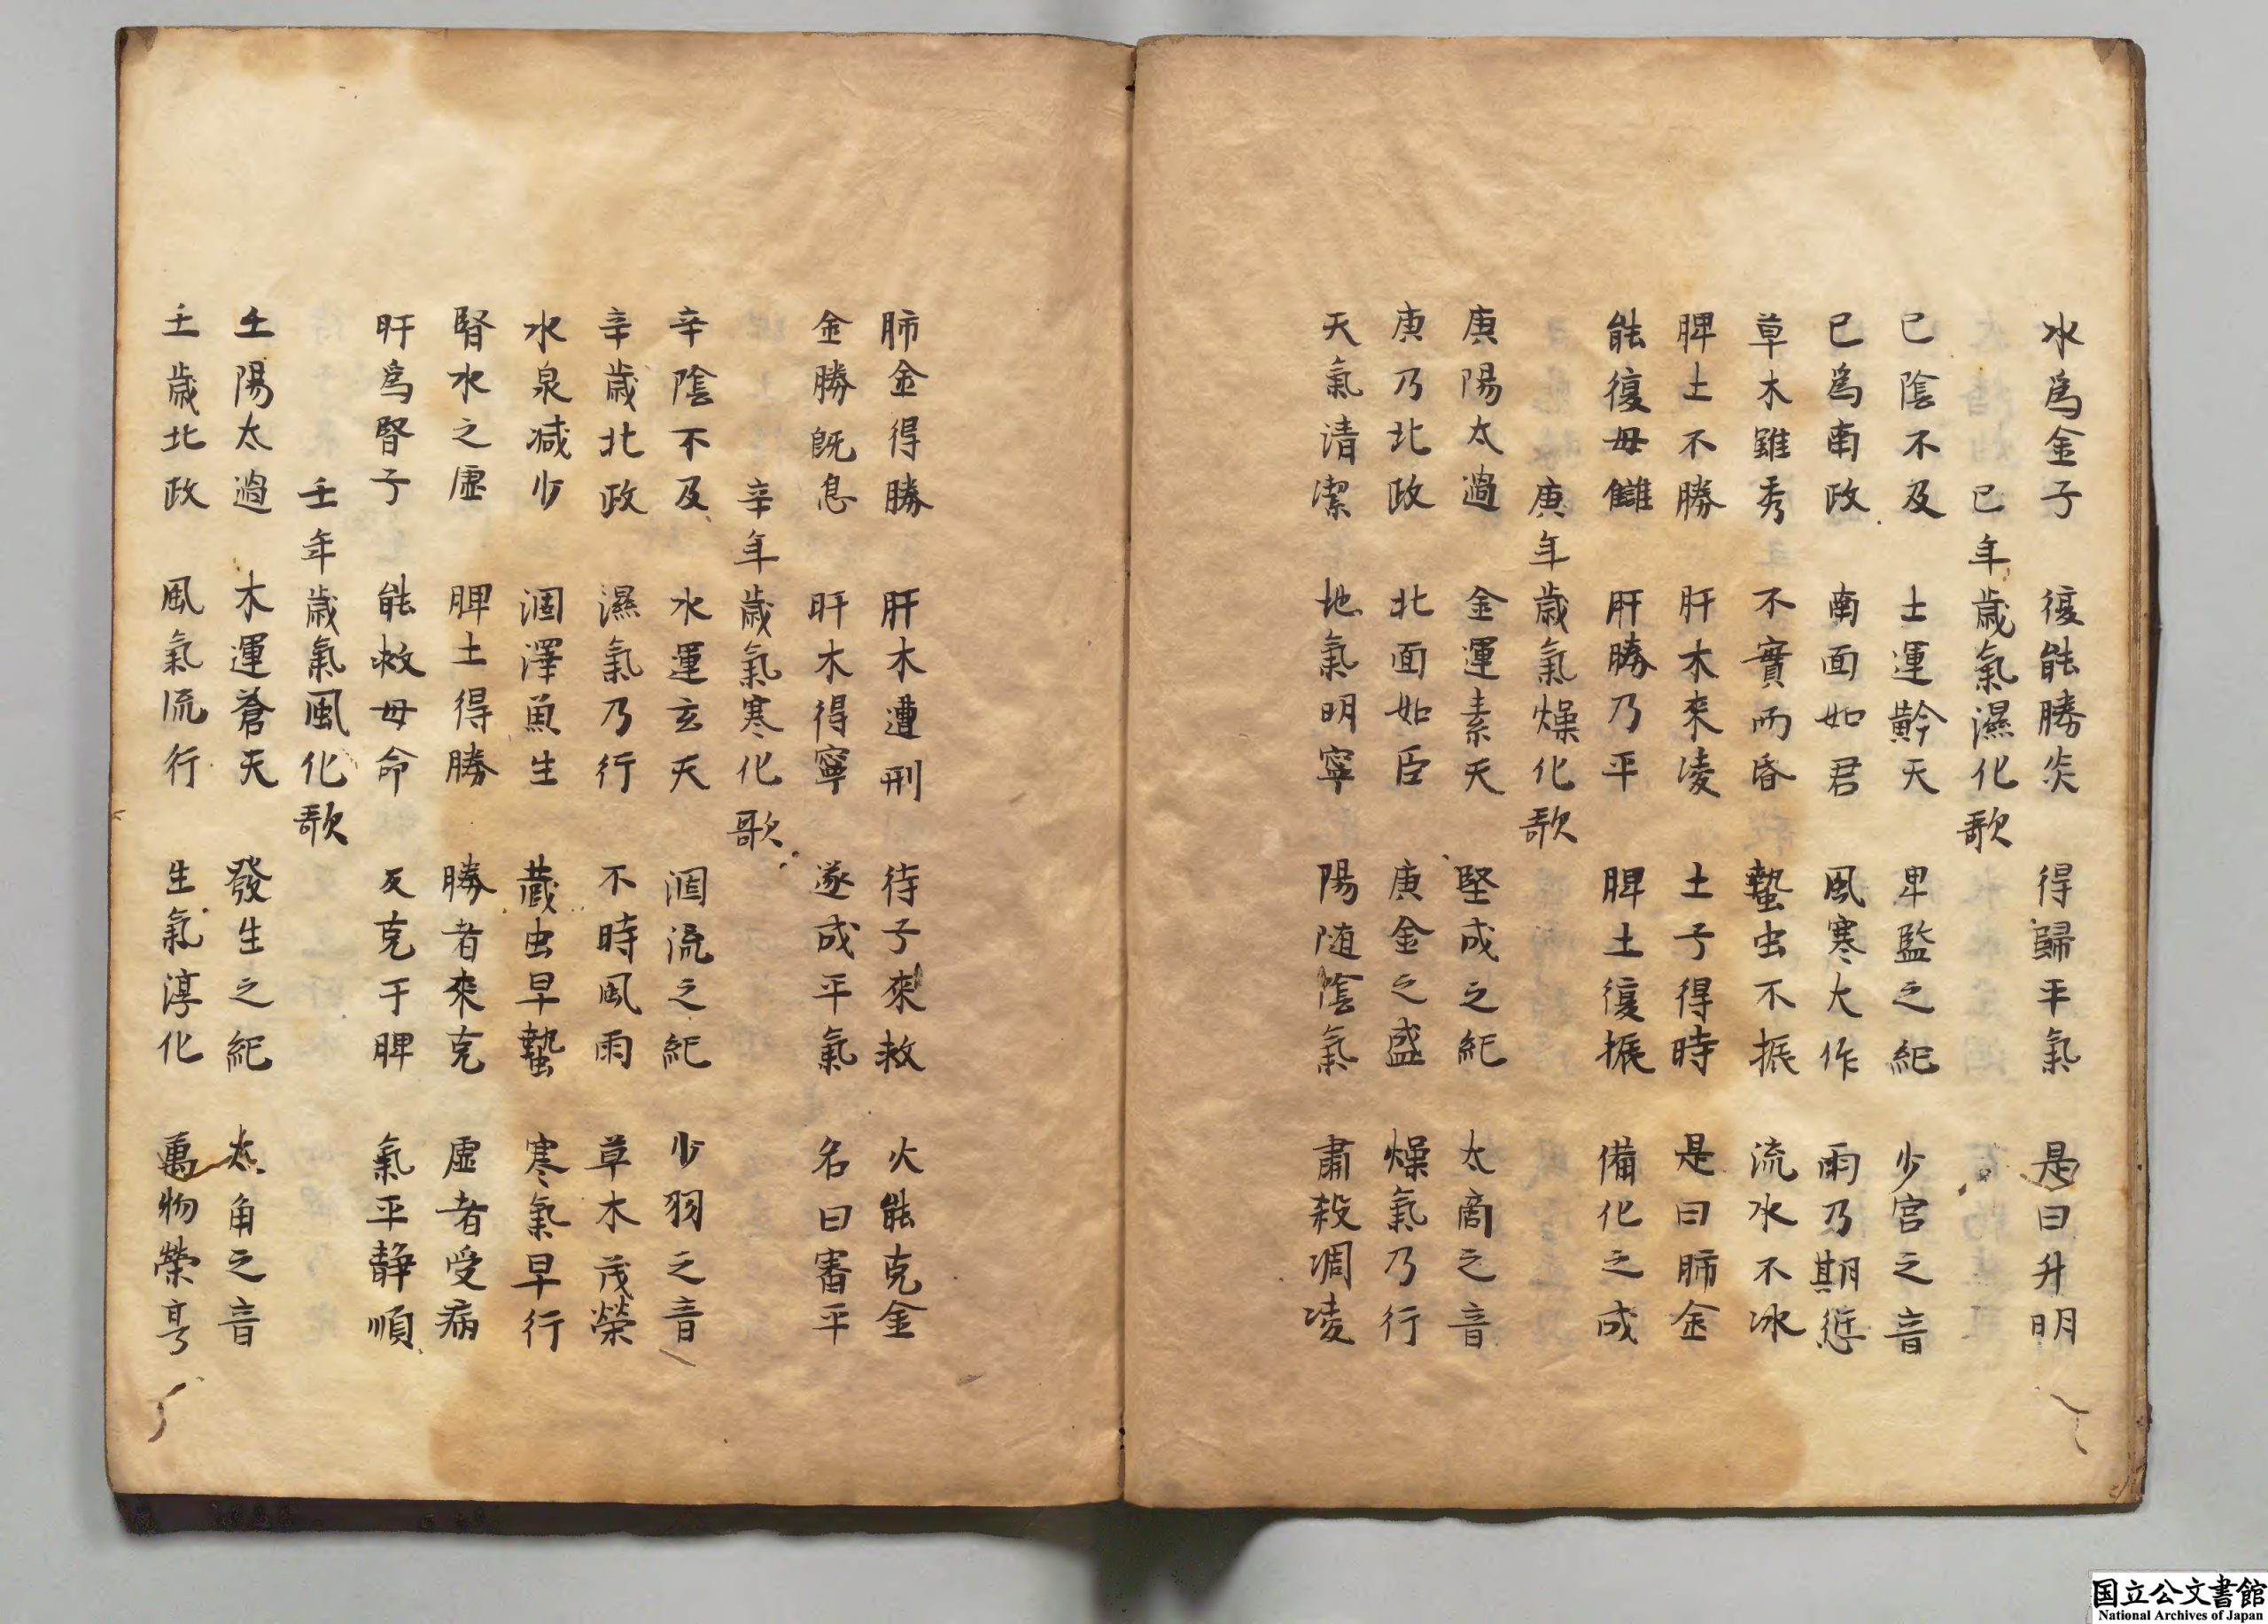 水爲金子　復能勝炎　得歸平氣　是曰升明
己年歲氣濕化歌
己陰不及　土運黅天　卑監之紀　少宮之音
己爲南政　南面如君　風寒大作　雨乃期愆
草木雖秀　不實而昏　蟄虫不振　流水不冰
脾土不勝　肝木來凌　土子得時　是曰肺金
能復母讎　肝勝乃平　脾土復振　備化之成
庚年歲氣燥化歌
庚陽太過　金運素天　堅成之紀　太商之音
庚乃北政　北面如臣　庚金之盛　燥氣乃行
天氣清潔　地氣明寧　陽随陰氣　肅殺凋凌
肺金得勝　肝木遭刑　待子來救　火能克金
金勝既息　肝木得寧　遂成平氣　名曰審平
辛年歲氣寒化歌
辛陰不及　水運玄天　涸流之紀　少羽之音
辛歲北政　濕氣乃行　不時風雨　草木茂榮
水泉减少　涸澤魚生　藏虫早蟄　寒氣早行
腎水之虛　脾土得勝　勝者來克　虛者受病
肝爲腎子　能救母命　反克于脾　氣平静順
壬年歲氣風化歌
壬陽太過　木運蒼天　發生之紀　太角之音
壬歲北政　風氣流行　生氣淳化　萬物榮亨
国立公文書館
National Archives of Japan